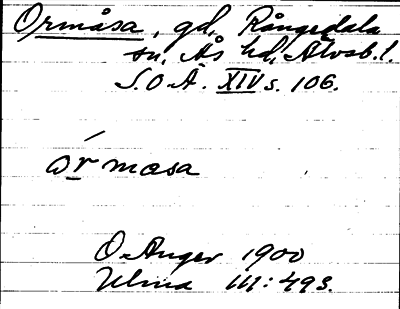 Ormåsa, gd, Rångedala
sn, Ås hd, Älvsb. l.
S.O.Ä. XIV s. 106.
órmasa
O. Anger 1900
Ulma III: 493.